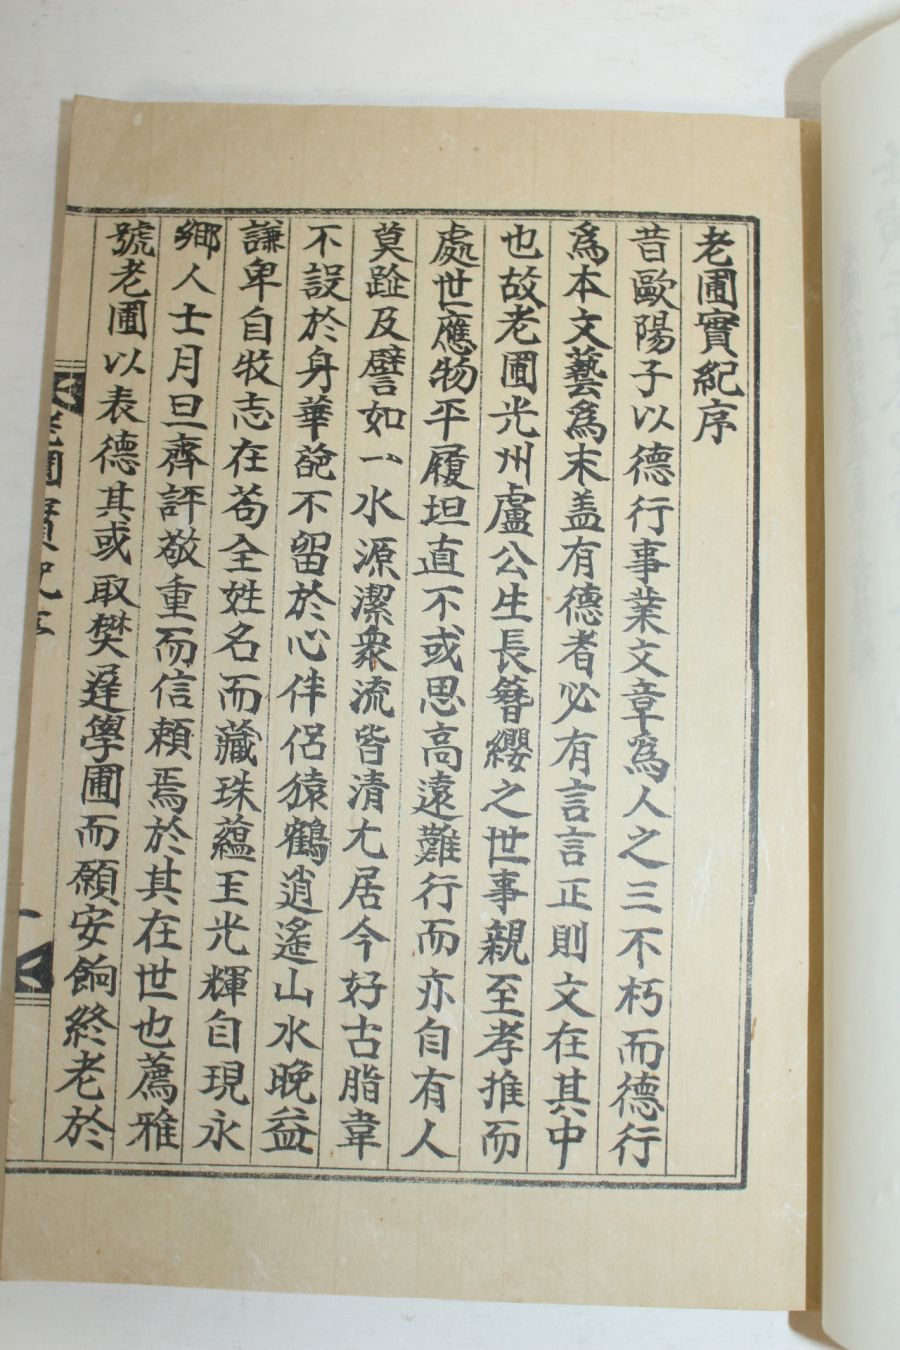 老圃實紀序
昔歐陽子以德行事業文章爲人之三不朽而德行
爲本文藝爲末盖有德者必有言言正則文在其中
也故老圃光州盧公生長簪纓之世事親至孝推而
處世應物平履坦直不或思高遠難行而亦自有人
莫跂及譬如一水源潔衆流皆清尤居今好古脂韋
不設於身華䛐不留於心伴侶猿鶴逍遙山水晚益
謙卑自牧志在苟全姓名而藏珠蘊玉光輝自現永
鄉人士月旦齊評敬重而信賴焉於其在世也薦雅
號老圃以表德其或取樊遲學圃而願安餉終老於
老圃實紀序
一